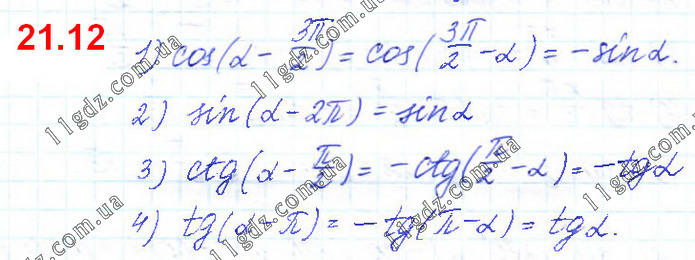 21.12
1) cos(α - 3π/2) = cos(3π/2 - α) = - sin α.
2) sin(α - 2π) = sin α
3) ctg(α - π/2) = - ctg(π/2 - α) = - tg α
4) tg(α - π) = - tg(π - α) = tg α.
11gdz.com.ua
11gdz.com.ua
11gdz.com.ua
11gdz.com.ua
11gdz.com.ua